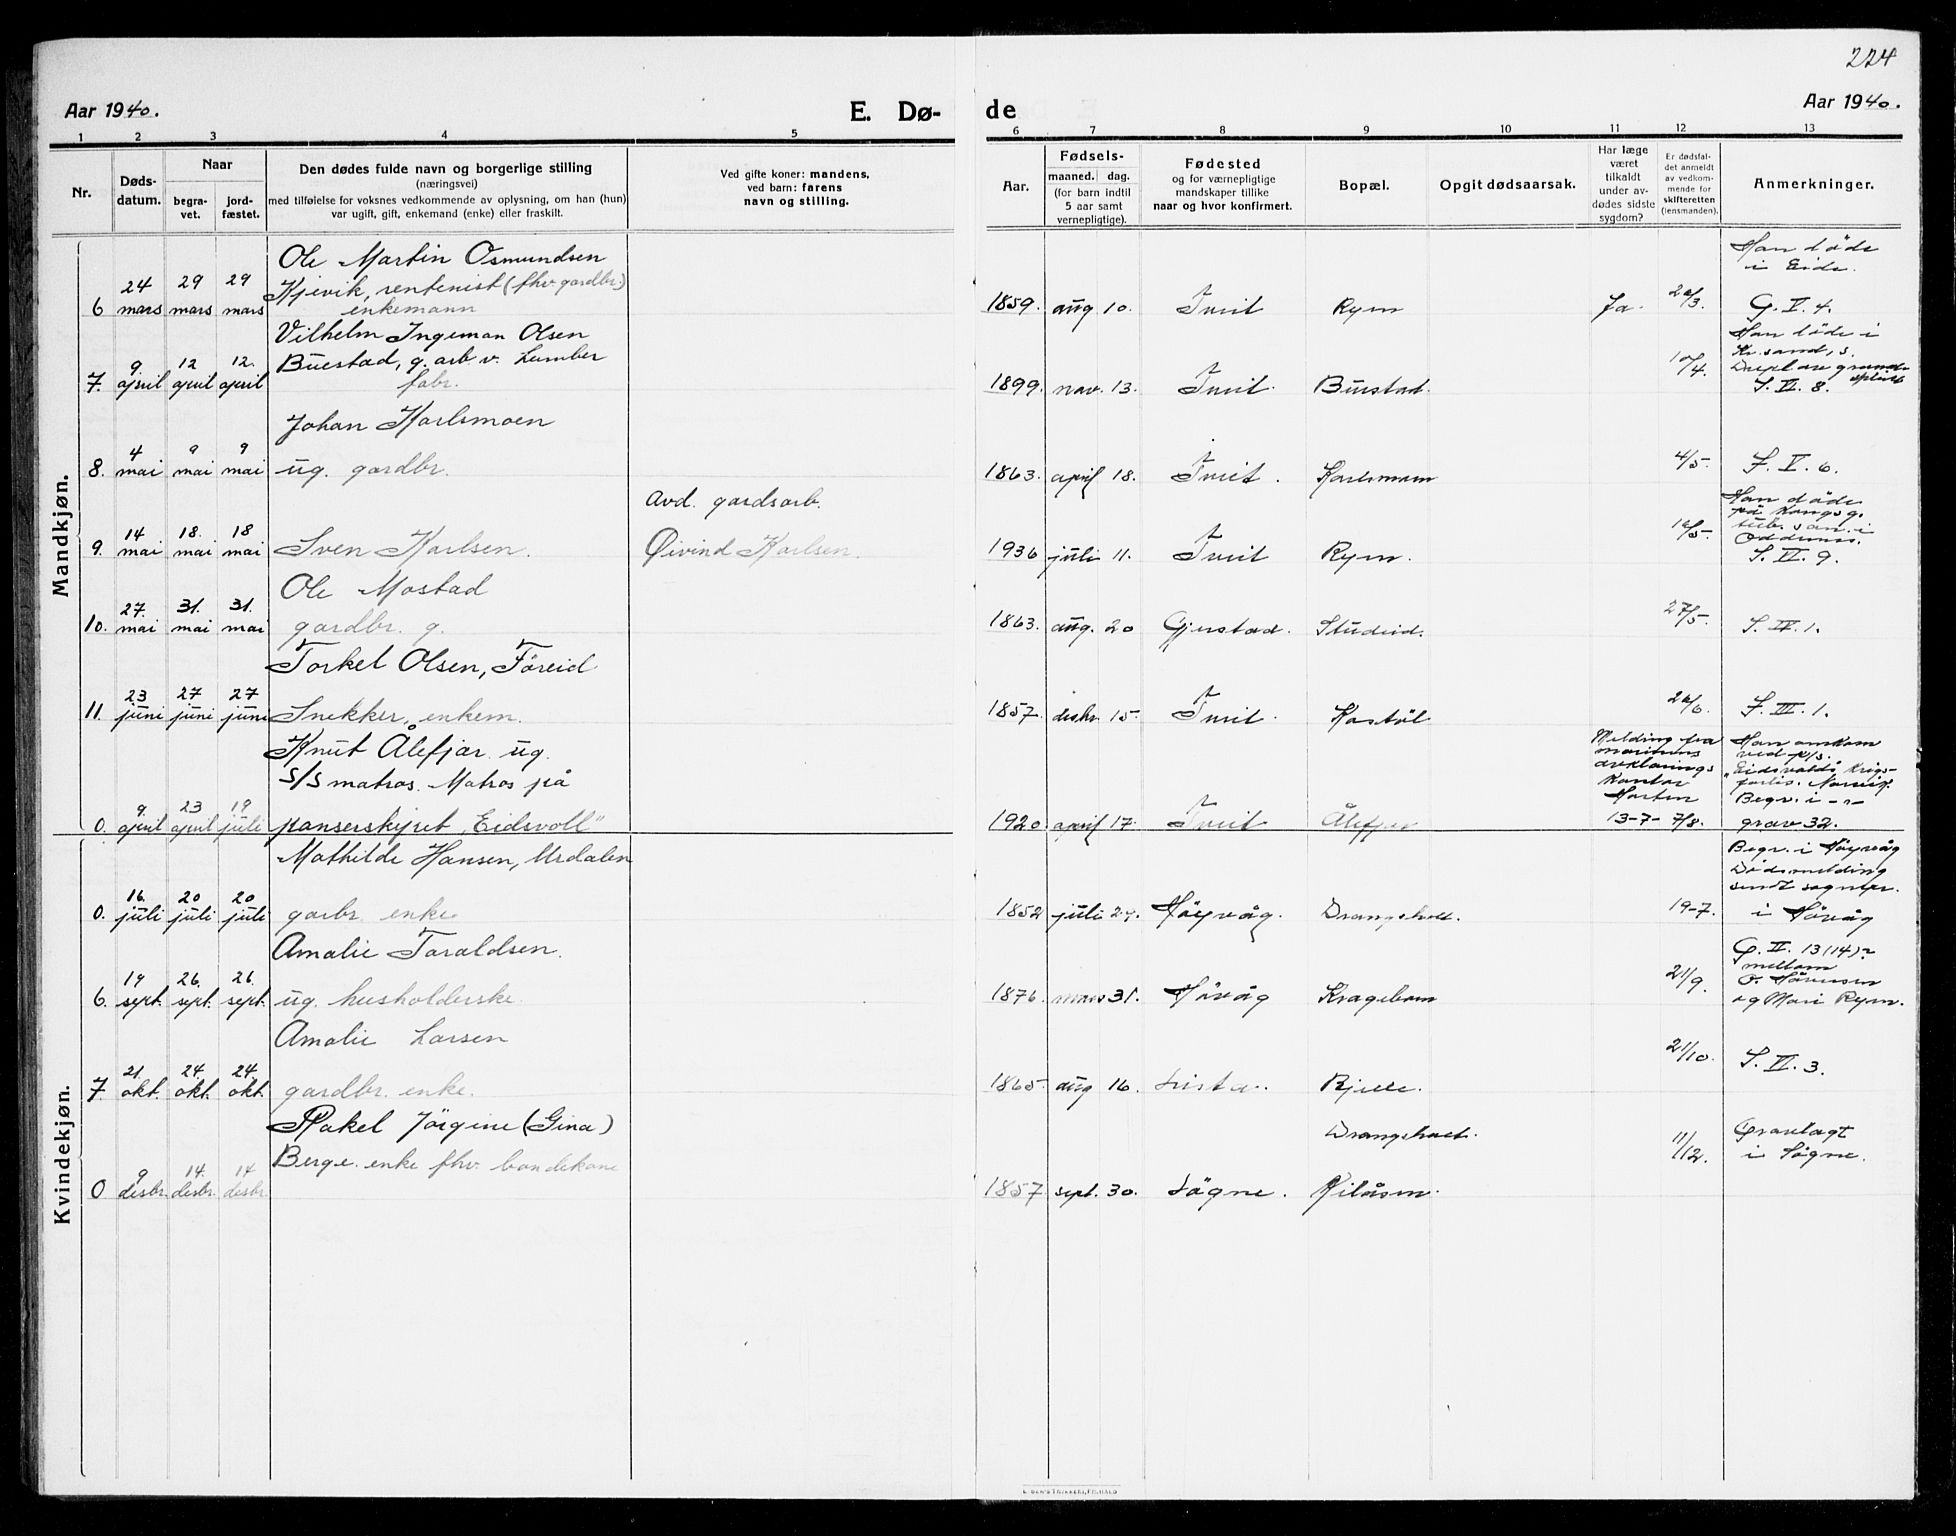 224
Aar 1940.
E. Dø-
de
Aar 1940.
1 2 3 4 5 6 7 8 9 10 11 12 13
Nr.
Døds-
datum.
Naar
begra-
vet.
jord-
fæstet.
Den dødes fulde navn og borgerlige stilling
(næringsvei)
med tilføielse for voksnes vedkommende av oplysning, om han (hun)
var ugift, gift, enkemand (enke) eller fraskilt.
Ved gifte koner: mandens,
ved barn: farens
navn og stilling.
Aar.
Fødsels-
maaned. dag.
(for barn indtil
5 aar samt
vernepligtige).
Fødested
og for værnepligtige
mandskaper tillike
naar og hvor konfirmert.
Bopæl.
Opgit dødsaarsak.
Har læge
været
tilkaldt
under av-
dødes sidste
sygdom?
Er dødsfal-
det anmeldt
av vedkom-
mende for
skifteretten
(lensmanden).
Anmerkninger.
Mandkjøn.
Ole Martin Osmundsen
Kjevik, rentenist (fhv. gardbr.)
enkemann
6 24 mars 29 mars 29 mars
1859. aug 10. Tveit Ryen Ja. 26/3.
Han døde
i Eide.
G. V. 4.
Vilhelm Ingeman Olsen
Buestad, g. arb. v. Lumber
fabr.
7. 9. april 12 april 12. april
1899. nov. 13. Tveit Buestad. 10/4.
Han døde i
Kr.sand, s.
Drept av granat-
splint
S. VI. 8.
Johan Karlsmoen
8. 4 mai 9 mai 9 mai ug. gardbr.
1863. april 18. Tveit. Karlsmoen 4/5. F. V. 6.
Avd. gardsarb.
9. 14 mai 18. mai 18 mai Sven Karlsen. Øivind Karlsen.
1936 juli 11. Tveit Ryen. 16/5.
Han døde
på Kongsg.
tub. san. i
Oddernes.
S. VI. 9.
Ole Mostad
10. 27. mai 31. mai 31. mai gardbr. g.
1863. aug. 20 Gjerstad. Studeid. 27/5. S. IV. 1.
Torkel Olsen, Føreid
11. 23 juni 27 juni 27 juni Snekker, enkem.
1857. desbr. 15. Tveit. Kostøl 26/6. F. III. 1.
Knut Ålefjær ug.
S/S matros. Matros på
0. 9. april 23 april 19 juli panserskipet "Eidsvoll"
1920. april 17. Tveit Ålefjær
Melding fra
marinens
avklarings
kontor
Horten
13-7- 7/8.
Han omkom
ved p/s.
"Eidsvolds krigs-
forlis. Narvik.
Begr. i - " -
grav 32.
Kvindekjøn.
Mathilde Hansen, Urdalen
0. 16. juli 20 juli 20 juli garbr. enke
1852 juli 27. Høyvåg. Drangsholt. 19-7.
Begr. i Høyvåg
Dødsmelding
sendt sognepr.
i Høvåg
Amalie Taraldsen.
6. 19 sept. 26. sept. 26. sept. ug. husholderske.
1876. mars 31. Høvåg Krageboen 21/9.
G. II. 13 (14)
mellom
O. Sørensen
og Mari Ryen.
Amalie Larsen
7. 21. okt. 24. okt. 24. okt. gardbr. enke.
1865. aug 16. Lista. 21/10. S. VI. 3.
Rakel Jørgine (Gina)
Berge. enke fhv. bondekone
0 9 desbr. 14. desbr. 14 desbr.
1857 sept. 30. Søgne. Drangsholt.
Kilåsen. 11/12.
Gravlagt
i Søgne.